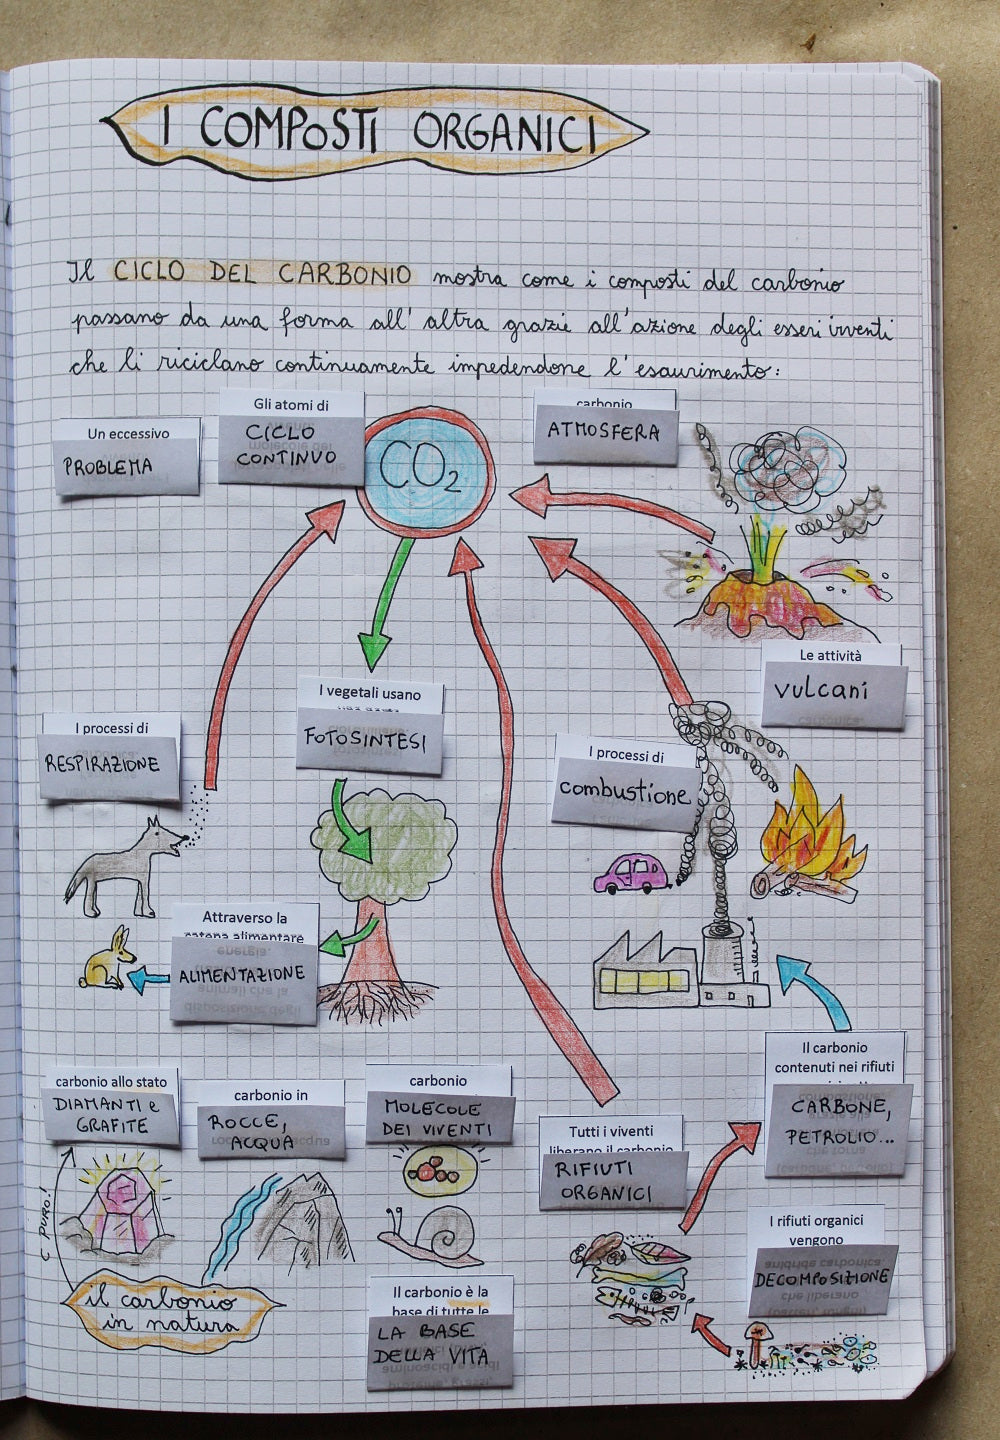 I COMPOSTI ORGANICI
Il CICLO DEL CARBONIO mostra come i composti del carbonio
passano da una forma all'altra grazie all'azione degli esseri viventi
che li riciclano continuamente impedendone l'esaurimento:
Un eccessivo
PROBLEMA
Gli atomi di
CICLO
CONTINUO
CO2
carbonio
ATMOSFERA
Le attività
vulcani
I vegetali usano
FOTOSINTESI
I processi di
RESPIRAZIONE
I processi di
combustione
Attraverso la
catena alimentare
ALIMENTAZIONE
Il carbonio
contenuti nei rifiuti
CARBONE,
PETROLIO...
carbonio allo stato
DIAMANTI e
GRAFITE
carbonio in
ROCCE,
ACQUA
carbonio
MOLECOLE
DEI VIVENTI
Tutti i viventi
liberano il carbonio
RIFIUTI
ORGANICI
I rifiuti organici
vengono
DECOMPOSIZIONE
C PURO!
il carbonio
in natura
Il carbonio è la
base di tutte le
LA BASE
DELLA VITA